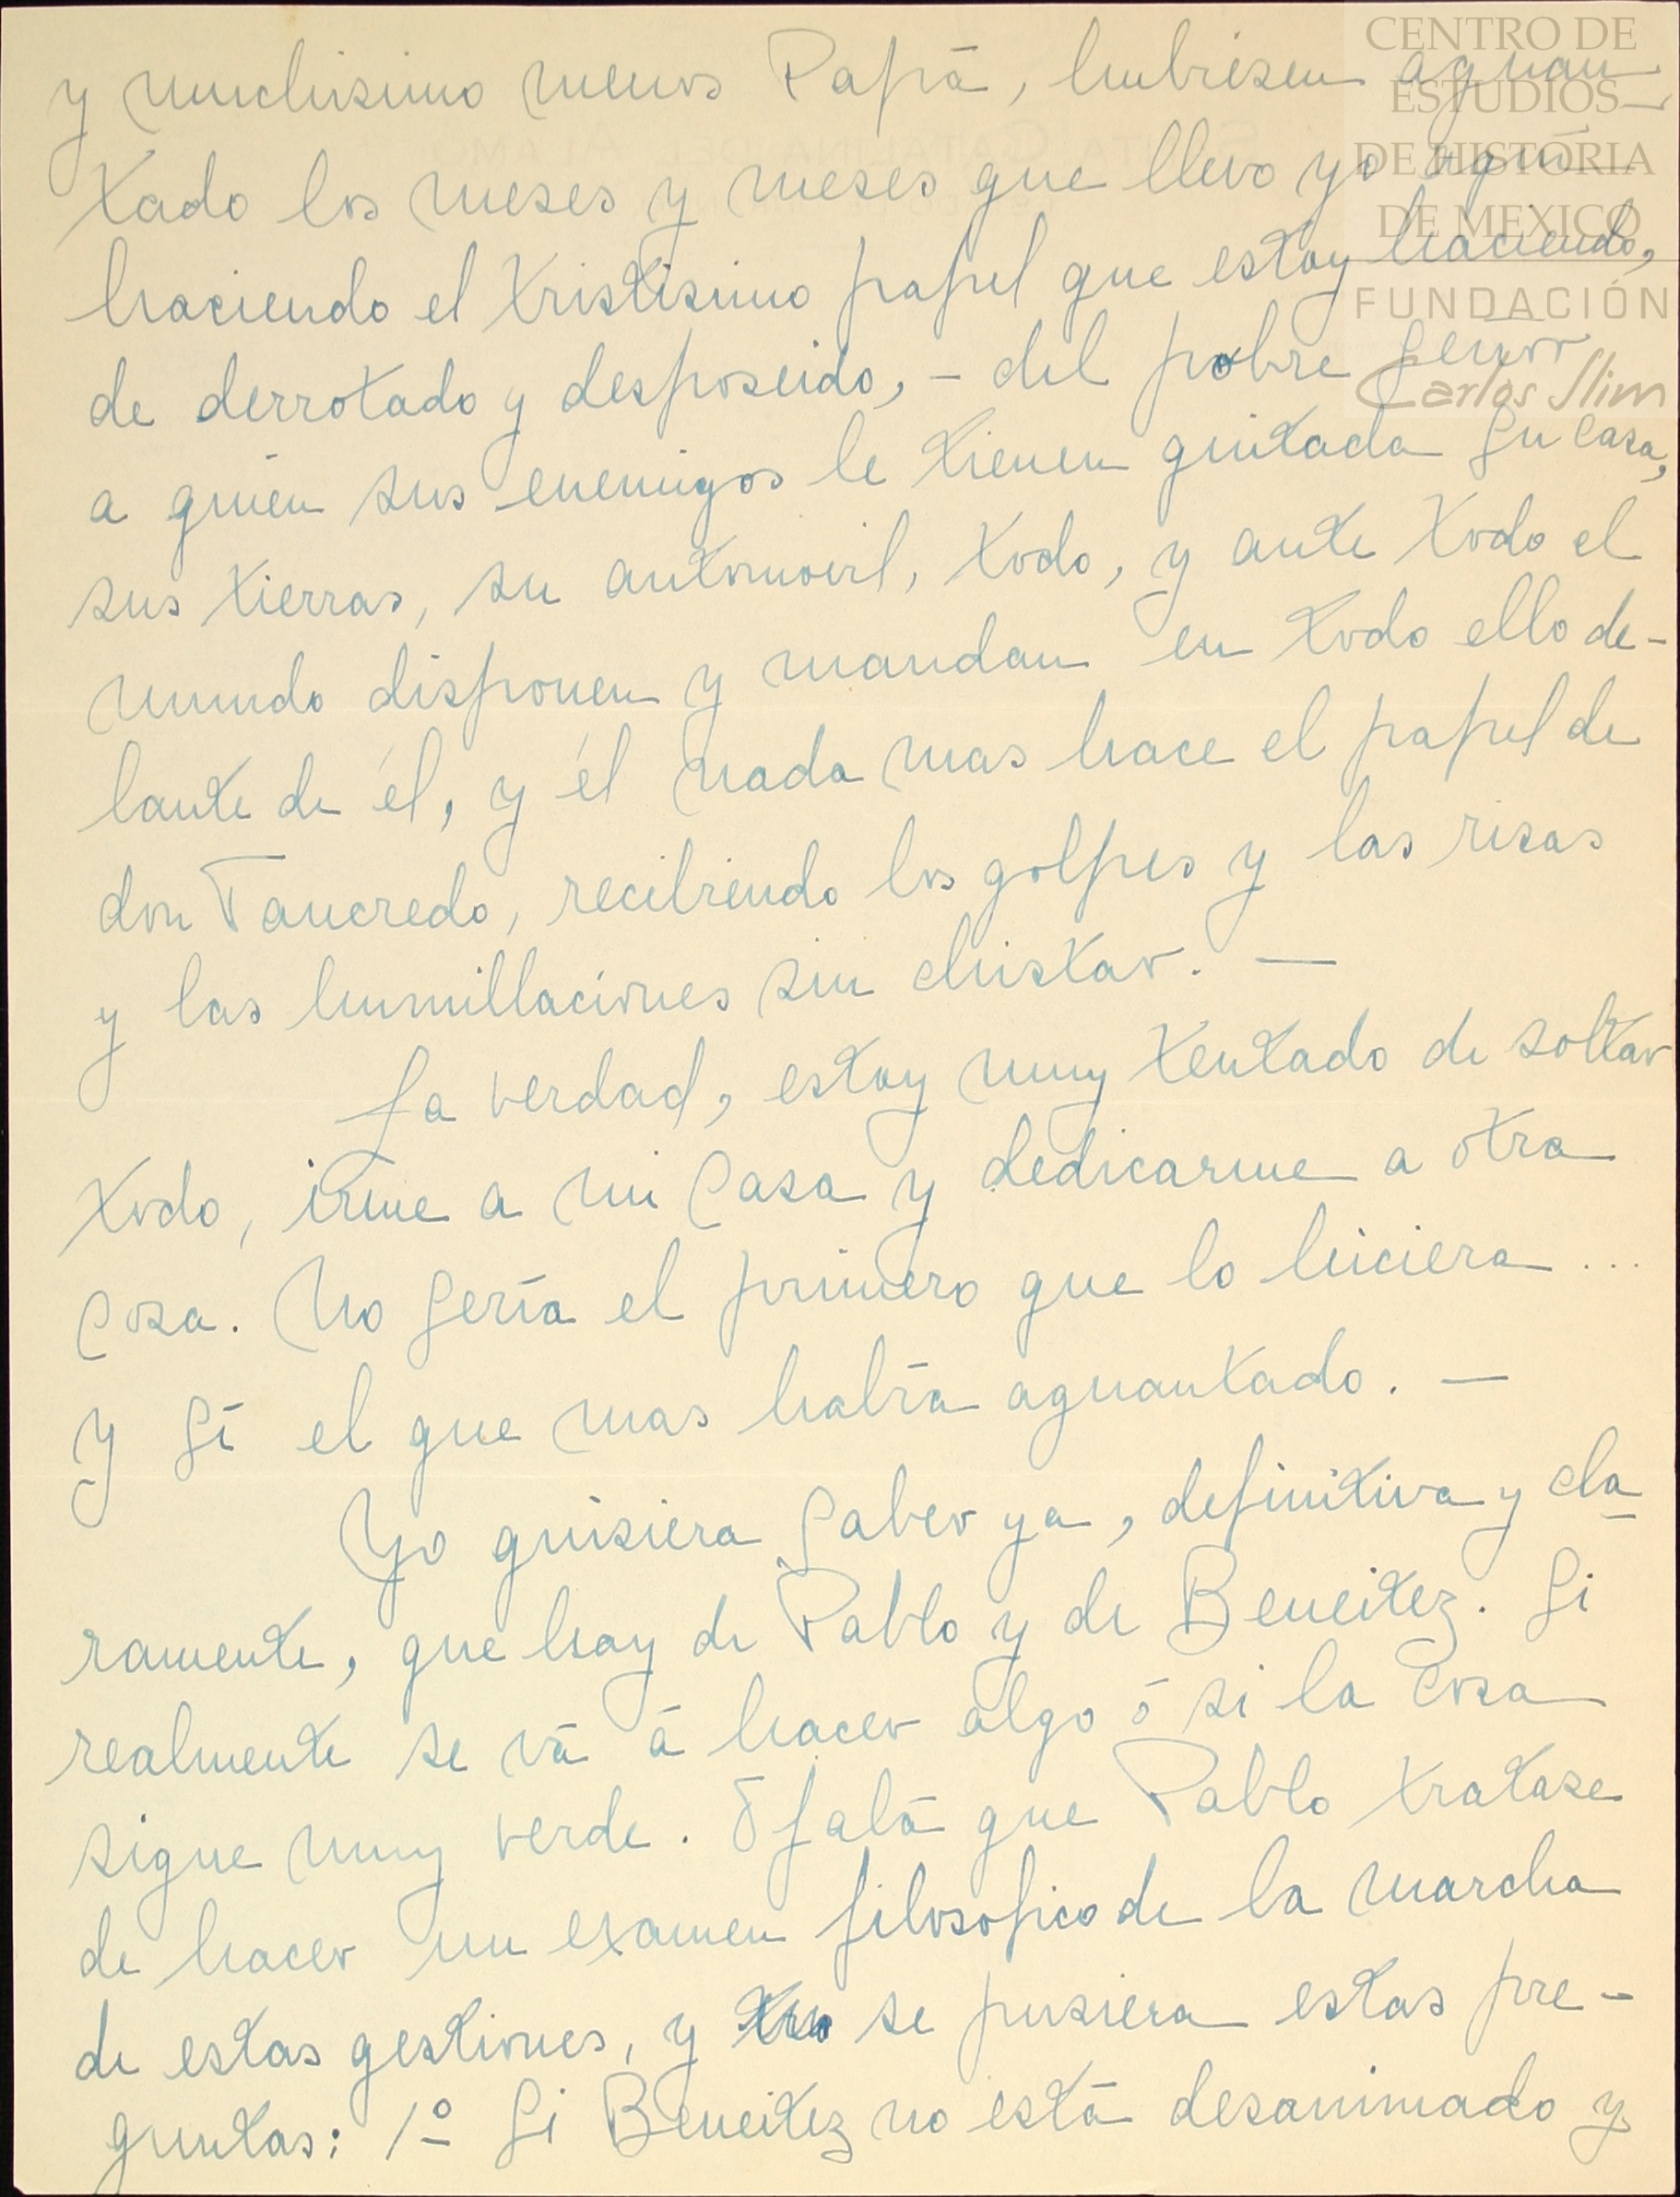 CENTRO DE
ESTUDIOS
DE HISTORIA
DE MEXICO
FUNDACIÓN
Carlos Slim
y muchisimo menos Papá, hubiesen aguan-
tado los meses y meses que llevo yo aquí
haciendo el tristisimo papel que estoy haciendo,
de derrotado y desposeido, - del pobre señor
a quién sus enemigos le tienen quitada su casa,
sus tierras, su automovil, todo, y ante todo el
mundo disponen y mandan en todo ello de-
lante de él, y él nada mas hace el papel de
don Tancredo, recibiendo los golpes y las risas
y las humillaciones sin chistar. —
La verdad, estoy muy tentado de soltar
todo, irme a mi casa y dedicarme a otra
cosa. No sería el primero que lo hiciera ...
y sí el que mas habría aguantado. —
Yo quisiera saber ya, definitiva y cla-
ramente, que hay de Pablo y de Beneitez. Si
realmente se vá á hacer algo ó si la cosa
sigue muy verde. Ójalá que Pablo tratase
de hacer un examen filosofico de la marcha
de estas gestiones, y se pusiera estas pre-
guntas: 1º Si Beneitez no está desanimado y